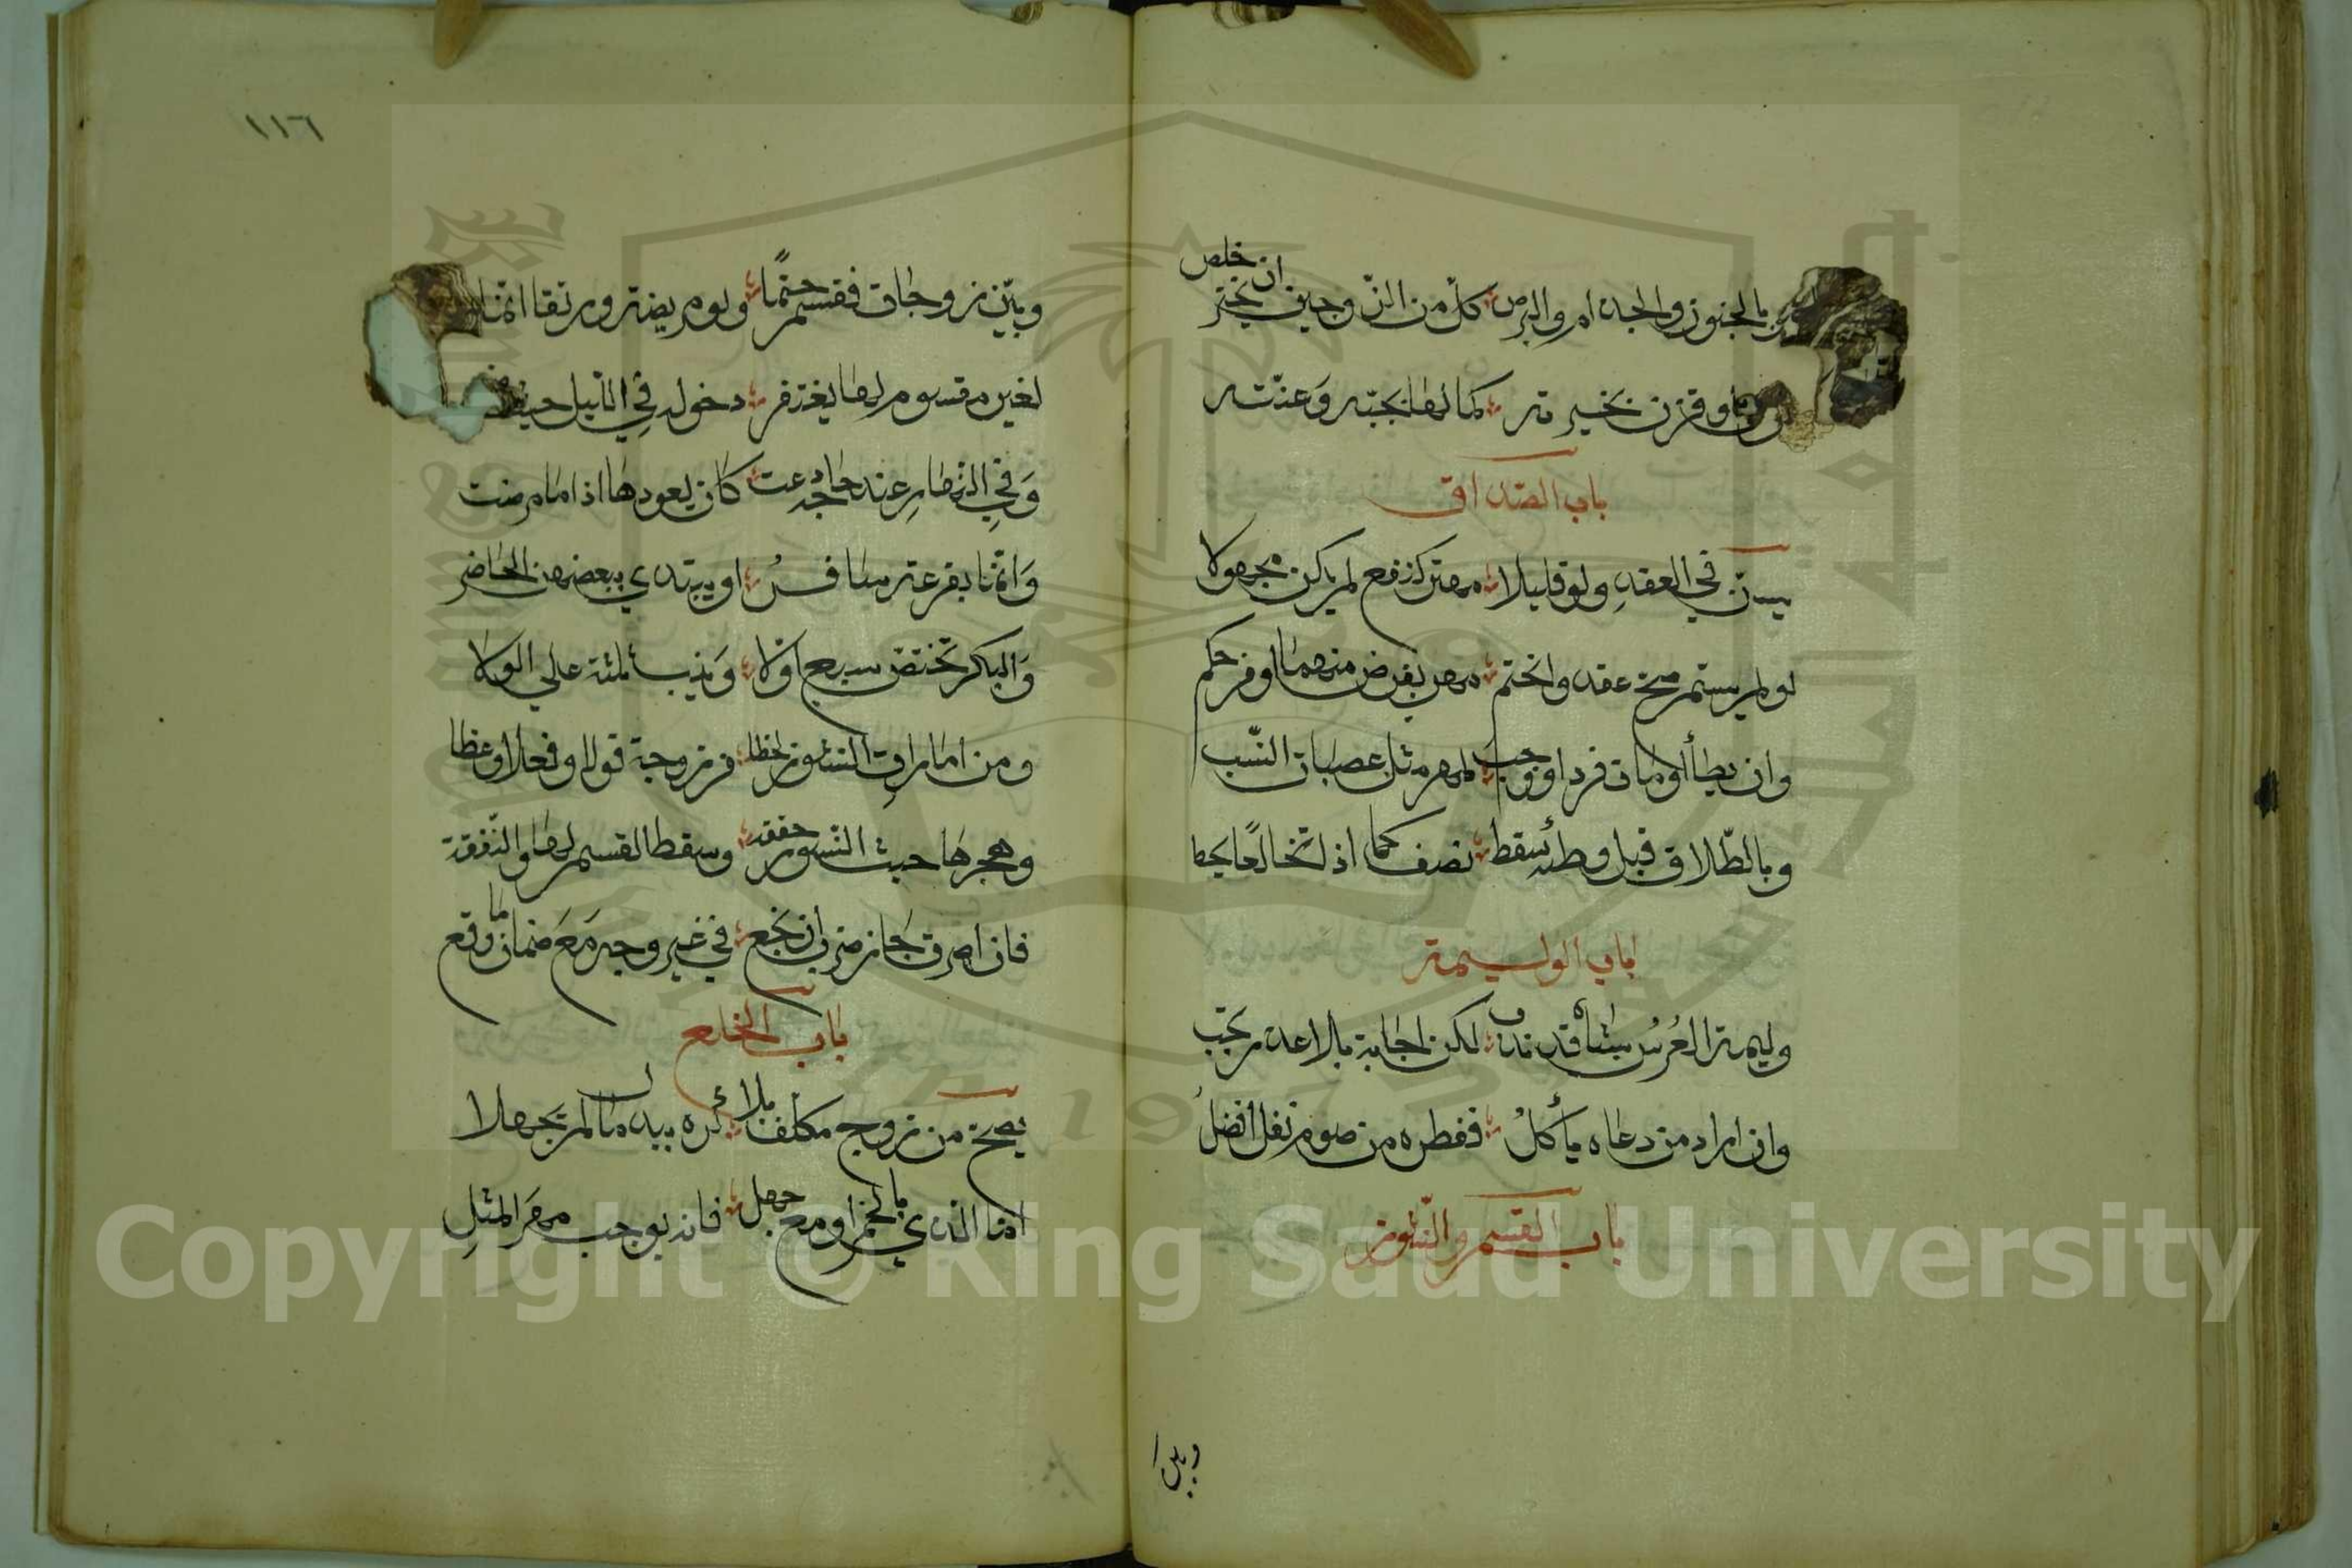 بالجنون والجذام والبرص كل من الزوجين ان يختر خلص
او قرن بخيرته كما لها بجبه وعنته
باب الصداق
يسن في العقد ولو قليلا مهر كنفع لم يكن مجهولا
لو لم يسم صح عقد وانختم مهر بفرض منهما او فرحكم
وان يطأ او مات فرد اوجب لمهر مثل عصبات النسب
وبالطلاق قبل وطئه سقط نصف كما اذا تخالعا يحط
باب الوليمة
وليمة العرس بشاة قد ندب لكن اجابة بلا عذر تجب
وان اراد من دعاه يأكل ففطره من صوم نفل افضل
باب القسم والنشوز
وبين
١١٦
وبين زوجات فقسم حتما ولو مريضة ورتقا انما
لغير مقسوم لها يغتفر دخوله في الليل حيث
وفي النهار عند حاجة دعت كان يعودها اذا ما مرضت
وانما بقرعة يسافر او يبتدي ببعضهن الحاضر
والبكر تختص بسبع اولا وثيب ثلثة على الولا
ومن امارات النشوز لحظا من زوجة قولا وفعلا وعظا
وهجرها حيث النشوز حققه وسقط القسم لها والنفقة
فان اصرت جاز ضرب ان نجع في غير وجه مع ضمان ما وقع
باب الخلع
يصح من زوج مكلف بلا كره ببذل مال لم يجهلا
اما الذي بالخمر او مع جهل فانه يوجب مهر المثل
Copyright © King Saud University
1957